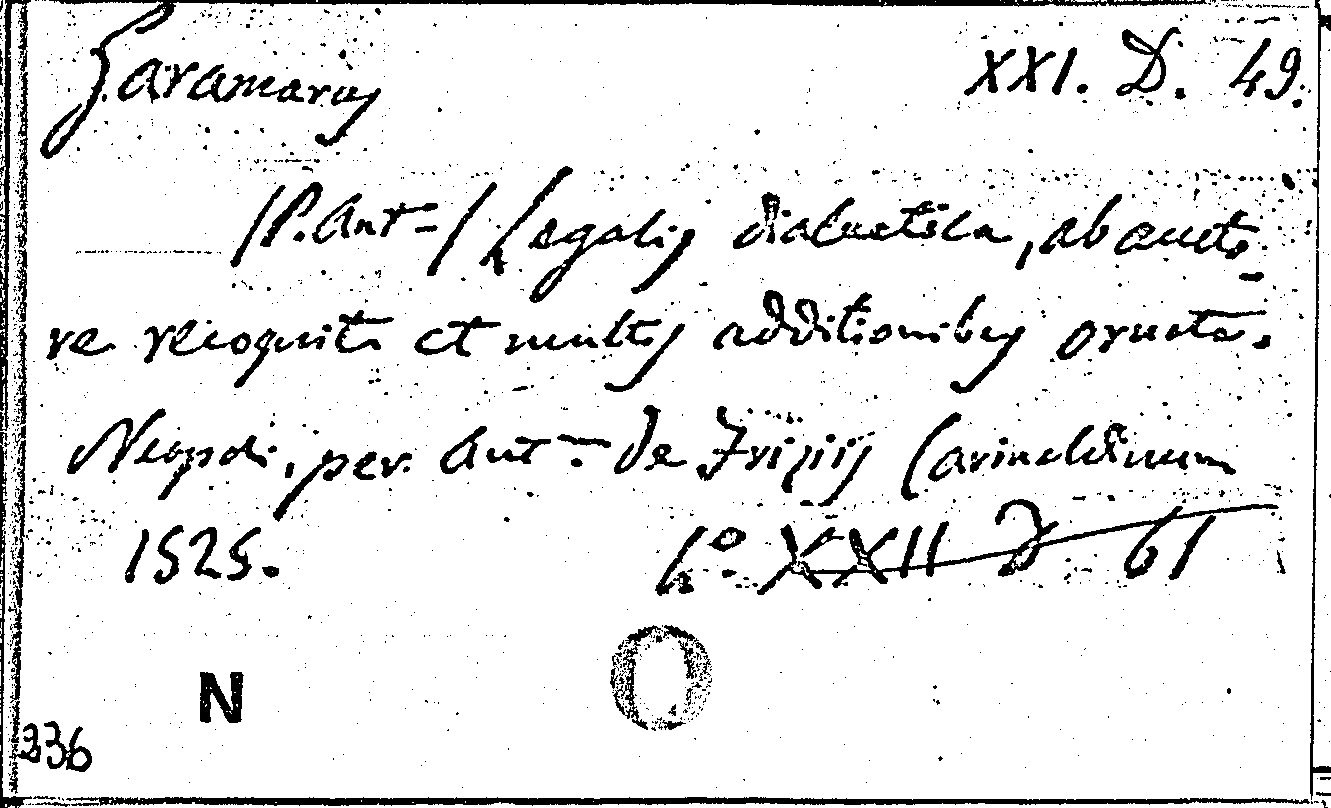 Garamarus XXI. D. 49.
(P. Ant-) Legalis dialectica, ab aucto-
re recognita et multis additionibus ornata.
Neapoli, per Ant.m de Frizijs Corinaldinum
1525. 4.º XXII D 61
N O
236